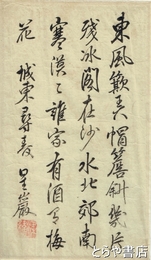 東風歎奏帽簷斜幾片
残冰閣在沙水北郊南
寒漠々誰家有酒有梅
花　城東尋春　星巖
とうや書店